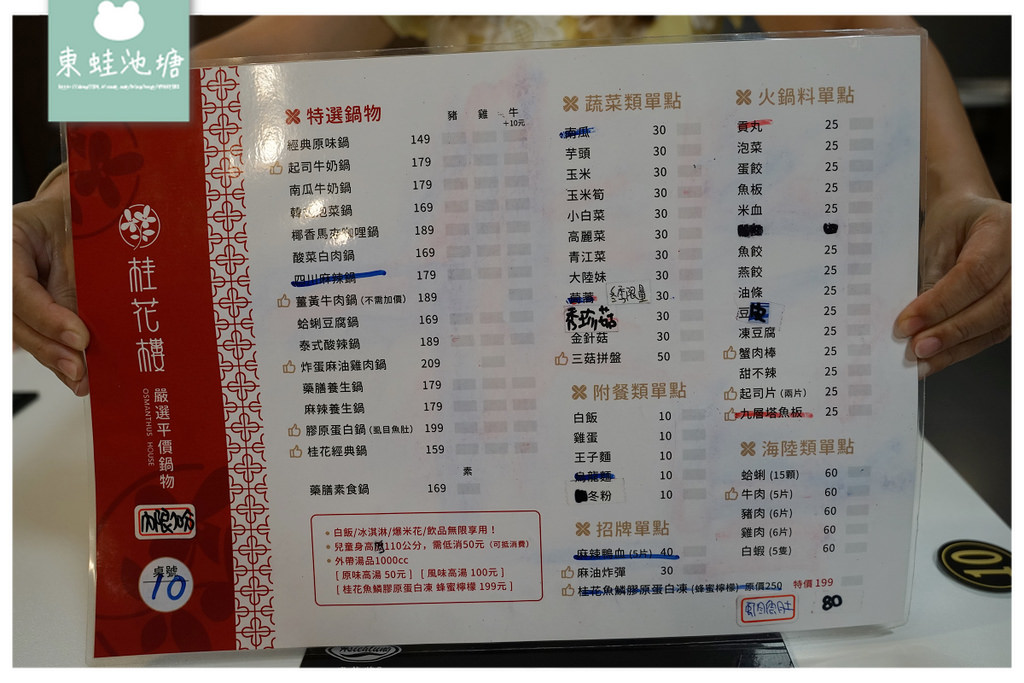 東蛙池塘
桂花樓
OSMANTHUS HOUSE
嚴選平價鍋物
內限90分
桌號
10
特選鍋物 豬 雞 牛
+10元
經典原味鍋 149
起司牛奶鍋 179
南瓜牛奶鍋 179
韓式泡菜鍋 169
椰香馬來咖哩鍋 189
酸菜白肉鍋 169
四川麻辣鍋 179
薑黃牛肉鍋 (不需加價) 189
蛤蜊豆腐鍋 169
泰式酸辣鍋 189
炸蛋麻油雞肉鍋 209
藥膳養生鍋 179
麻辣養生鍋 179
膠原蛋白鍋 (虱目魚肚) 199
桂花經典鍋 159
素
藥膳素食鍋 169
白飯/冰淇淋/爆米花/飲品無限享用！
兒童身高110公分，需低消50元 (可抵消費)
外帶湯品1000cc
[ 原味高湯 50元 ] [ 風味高湯 100元 ]
[ 桂花魚鱗膠原蛋白凍 蜂蜜檸檬 199元 ]
蔬菜類單點
南瓜 30
芋頭 30
玉米 30
玉米筍 30
小白菜 30
高麗菜 30
青江菜 30
大陸妹 30
冬季限量 30
秀珍菇 30
金針菇 30
三菇拼盤 50
附餐類單點
白飯 10
雞蛋 10
王子麵 10
烏龍麵 10
冬粉 10
招牌單點
麻辣鴨血 (5片) 40
麻油炸彈 30
桂花魚鱗膠原蛋白凍 (蜂蜜檸檬) 原價250 特價 199
虱目魚肚 80
火鍋料單點
貢丸 25
泡菜 25
蛋餃 25
魚板 25
米血 25
魚餃 25
燕餃 25
油條 25
豆 25
凍豆腐 25
蟹肉棒 25
甜不辣 25
起司片 (兩片) 25
九層塔魚板 25
海陸類單點
蛤蜊 (15顆) 60
牛肉 (5片) 60
豬肉 (6片) 60
雞肉 (6片) 60
白蝦 (5隻) 60
10